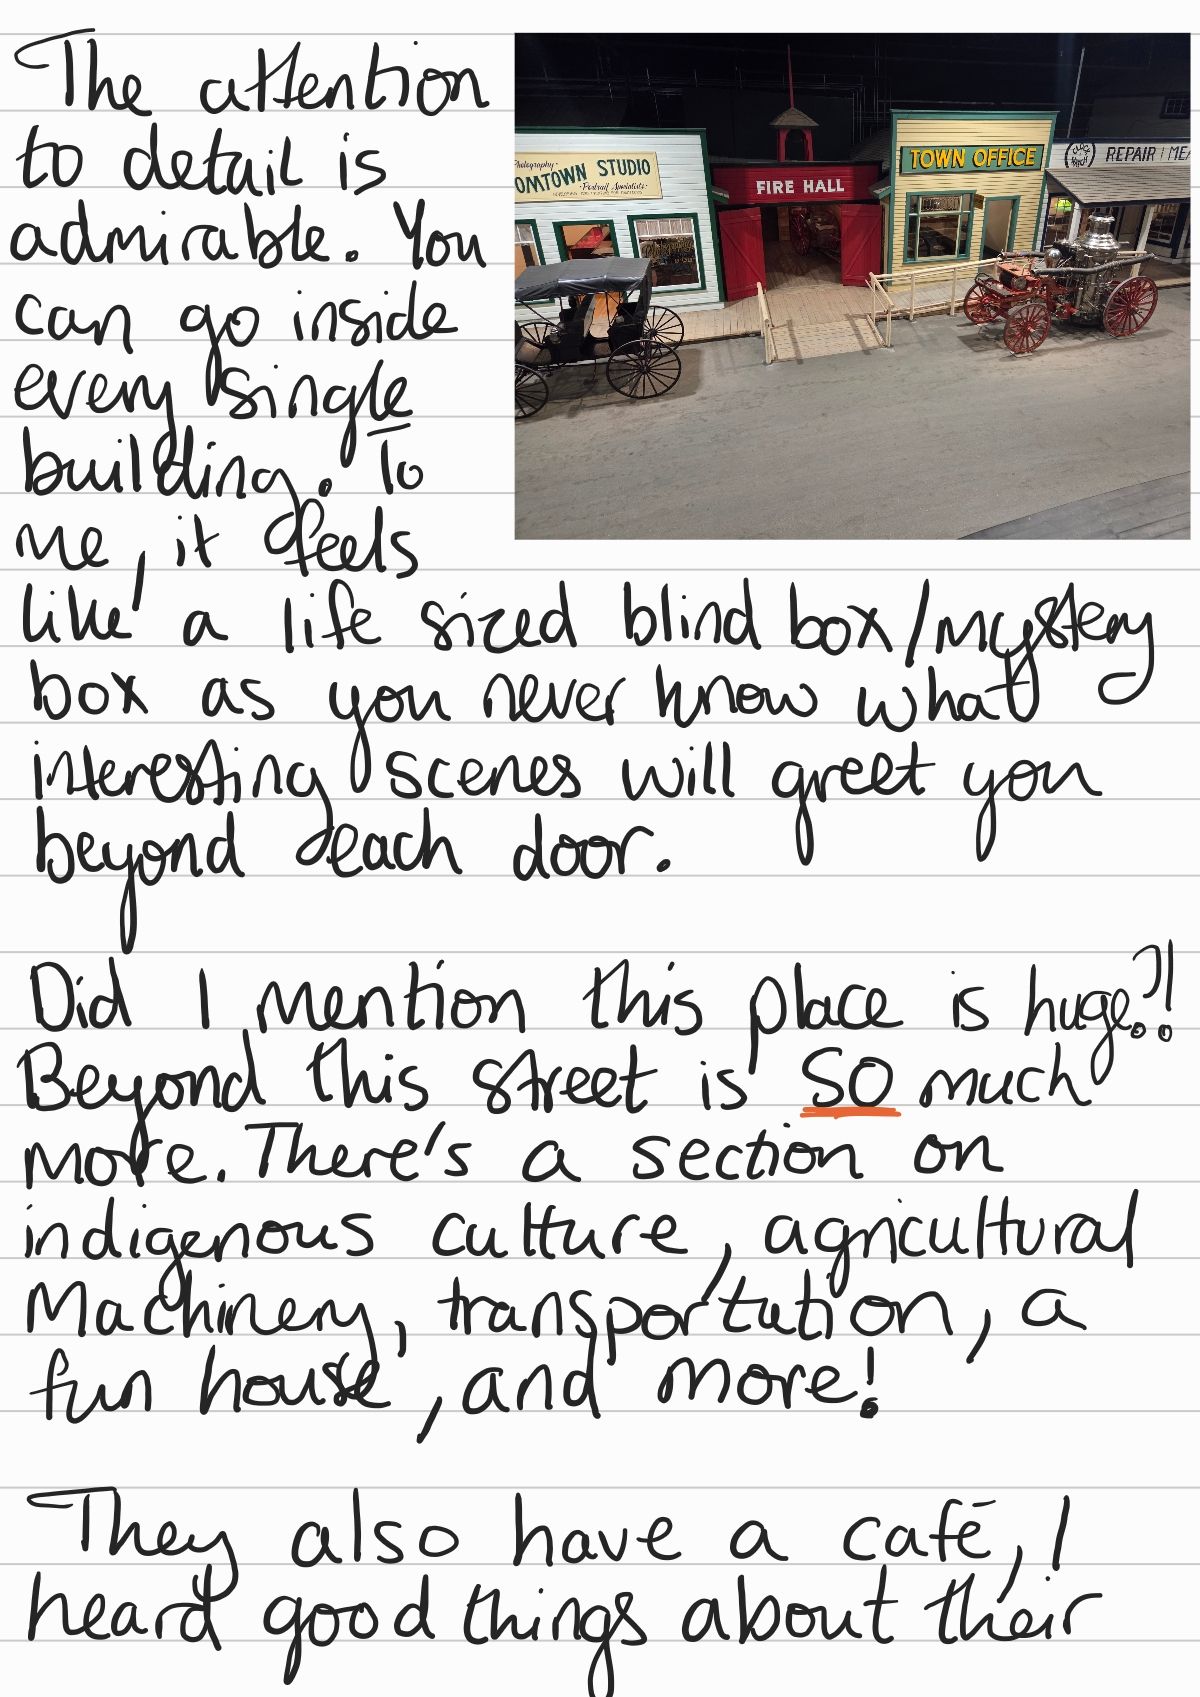 The attention
to detail is
admirable. You
can go inside
every single
building. To
me, it feels
like a life sized blind box/mystery
box as you never know what
interesting scenes will greet you
beyond each door.
Photography
OMTOWN STUDIO
Portrait Specialists
FIRE HALL
TOWN OFFICE
REPAIR
Did I mention this place is huge?!
Beyond this street is SO much
more. There's a section on
indigenous culture, agricultural
Machinery, transportation, a
fun house, and more!
They also have a café, I
heard good things about their